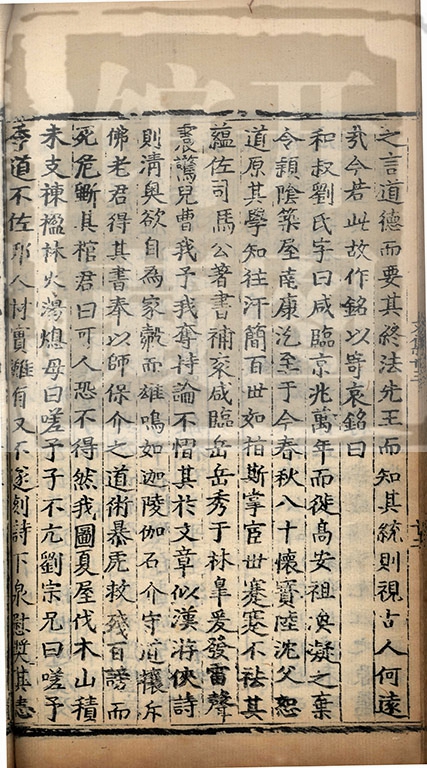 之言道德而要其終法先王而知其統則視古人何遠
㢤今若此故作銘以寄哀銘曰
和叔劉氏字曰咸臨京兆萬年而徙高安祖渙凝之棄
令潁隂築屋南康汔至于今春秋八十懷寳陸沈父恕
道原其學知往汗簡百世如指斯掌宦世蹇蹇不袪其
藴佐司馬公著書補衮咸臨岳岳秀于林臯爰發雷聲
震驚兒曹我予我奪持論不慴其於文章似漢游俠詩
則清奥欲自為家鷇而雄鳴如迦陵伽石介守道攘斥
佛老君得其書奉以師保介之道術暴虎救殘百謗而
死危斵其棺君曰可人恐不得然我圖夏屋伐木山積
未支棟楹林火湯熄母曰嗟予子不亢劉宗兄曰嗟予
季道不佐邦人材實難有又不遂刻詩下泉慰奬其志